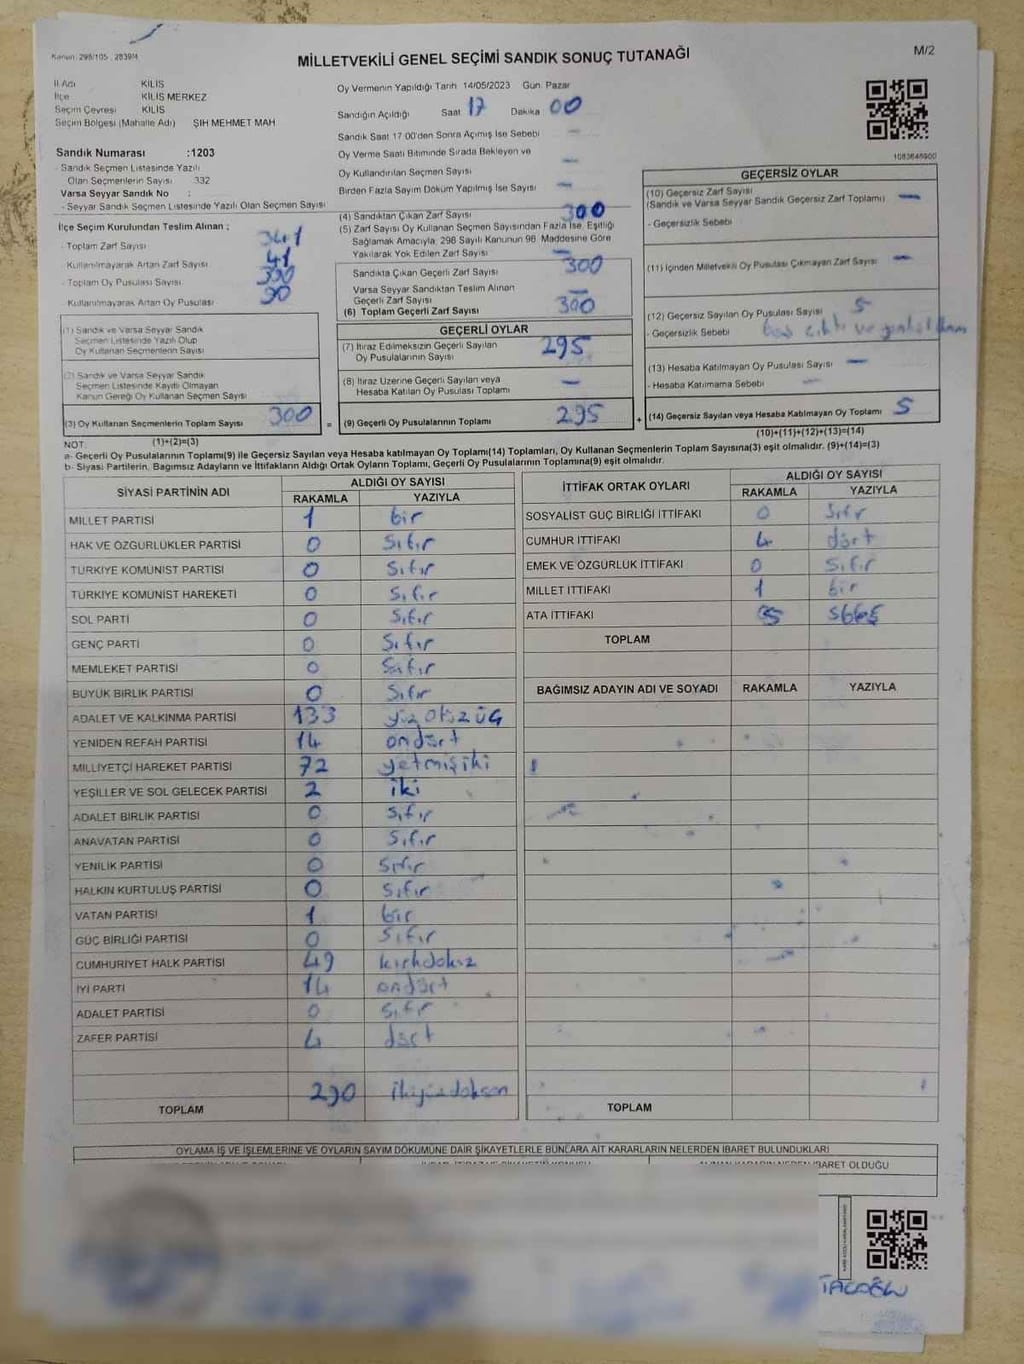 Kanun: 298/105, 2839/4
MİLLETVEKİLİ GENEL SEÇİMİ SANDIK SONUÇ TUTANAĞI
M/2
İl Adı KİLİS
İlçe KİLİS MERKEZ
Seçim Çevresi KİLİS
Seçim Bölgesi (Mahalle Adı) ŞIH MEHMET MAH
Sandık Numarası :1203
- Sandık Seçmen Listesinde Yazılı
Olan Seçmenlerin Sayısı 332
Varsa Seyyar Sandık No :
- Seyyar Sandık Seçmen Listesinde Yazılı Olan Seçmen Sayısı
Oy Vermenin Yapıldığı Tarih 14/05/2023 Gün: Pazar
Sandığın Açıldığı Saat 17 Dakika 00
Sandık Saat 17:00'den Sonra Açımış İse Sebebi —
Oy Verme Saati Bitiminde Sırada Bekleyen ve
Oy Kullandırılan Seçmen Sayısı —
Birden Fazla Sayım Döküm Yapılmış İse Sayısı —
1083646900
İlçe Seçim Kurulundan Teslim Alınan ;
- Toplam Zarf Sayısı 341
- Kullanılmayarak Artan Zarf Sayısı 41
- Toplam Oy Pusulası Sayısı 390
- Kullanılmayarak Artan Oy Pusulası 90
(1) Sandık ve Varsa Seyyar Sandık
Seçmen Listesinde Yazılı Olup
Oy Kullanan Seçmenlerin Sayısı
(2) Sandık ve Varsa Seyyar Sandık
Seçmen Listesinde Kayıtlı Olmayan
Kanun Gereği Oy Kullanan Seçmen Sayısı
(3) Oy Kullanan Seçmenlerin Toplam Sayısı 300
(1)+(2)=(3)
(4) Sandıktan Çıkan Zarf Sayısı 300
(5) Zarf Sayısı Oy Kullanan Seçmen Sayısından Fazla İse, Eşitliği
Sağlamak Amacıyla, 298 Sayılı Kanunun 98. Maddesine Göre
Yakılarak Yok Edilen Zarf Sayısı —
Sandıkta Çıkan Geçerli Zarf Sayısı 300
Varsa Seyyar Sandıktan Teslim Alınan
Geçerli Zarf Sayısı —
(6) Toplam Geçerli Zarf Sayısı 300
GEÇERLİ OYLAR
(7) İtiraz Edilmeksizin Geçerli Sayılan
Oy Pusulalarının Sayısı 295
(8) İtiraz Üzerine Geçerli Sayılan veya
Hesaba Katılan Oy Pusulası Toplamı —
= (9) Geçerli Oy Pusulalarının Toplamı 295 +
GEÇERSİZ OYLAR
(10) Geçersiz Zarf Sayısı —
(Sandık ve Varsa Seyyar Sandık Geçersiz Zarf Toplamı)
- Geçersizlik Sebebi
(11) İçinden Milletvekili Oy Pusulası Çıkmayan Zarf Sayısı —
(12) Geçersiz Sayılan Oy Pusulası Sayısı 5
- Geçersizlik Sebebi
(13) Hesaba Katılmayan Oy Pusulası Sayısı —
- Hesaba Katılmama Sebebi —
(14) Geçersiz Sayılan veya Hesaba Katılmayan Oy Toplamı 5
(10)+(11)+(12)+(13)=(14)
NOT:
a- Geçerli Oy Pusulalarının Toplamı(9) ile Geçersiz Sayılan veya Hesaba katılmayan Oy Toplamı(14) Toplamları, Oy Kullanan Seçmenlerin Toplam Sayısına(3) eşit olmalıdır. (9)+(14)=(3)
b- Siyasi Partilerin, Bağımsız Adayların ve İttifakların Aldığı Ortak Oyların Toplamı, Geçerli Oy Pusulalarının Toplamına(9) eşit olmalıdır.
SİYASİ PARTİNİN ADI ALDIĞI OY SAYISI
RAKAMLA YAZIYLA
MİLLET PARTİSİ 1 bir
HAK VE ÖZGÜRLÜKLER PARTİSİ 0 Sıfır
TÜRKİYE KOMÜNİST PARTİSİ 0 Sıfır
TÜRKİYE KOMÜNİST HAREKETİ 0 Sıfır
SOL PARTİ 0 Sıfır
GENÇ PARTİ 0 Sıfır
MEMLEKET PARTİSİ 0 Sıfır
BÜYÜK BİRLİK PARTİSİ 0 Sıfır
ADALET VE KALKINMA PARTİSİ 133 yüzotuzüç
YENİDEN REFAH PARTİSİ 14 ondört
MİLLİYETÇİ HAREKET PARTİSİ 72 yetmişiki
YEŞİLLER VE SOL GELECEK PARTİSİ 2 iki
ADALET BİRLİK PARTİSİ 0 Sıfır
ANAVATAN PARTİSİ 0 Sıfır
YENİLİK PARTİSİ 0 Sıfır
HALKIN KURTULUŞ PARTİSİ 0 Sıfır
VATAN PARTİSİ 1 bir
GÜÇ BİRLİĞİ PARTİSİ 0 Sıfır
CUMHURİYET HALK PARTİSİ 49 kırkdokuz
İYİ PARTİ 14 ondört
ADALET PARTİSİ 0 Sıfır
ZAFER PARTİSİ 4 dört
TOPLAM 290 ikiyüzdoksan
İTTİFAK ORTAK OYLARI ALDIĞI OY SAYISI
RAKAMLA YAZIYLA
SOSYALİST GÜÇ BİRLİĞİ İTTİFAKI 0 Sıfır
CUMHUR İTTİFAKI 4 dört
EMEK VE ÖZGÜRLÜK İTTİFAKI 0 Sıfır
MİLLET İTTİFAKI 1 bir
ATA İTTİFAKI
TOPLAM
BAĞIMSIZ ADAYIN ADI VE SOYADI RAKAMLA YAZIYLA
TOPLAM
OYLAMA İŞ VE İŞLEMLERİNE VE OYLARIN SAYIM DÖKÜMÜNE DAİR ŞİKAYETLERLE BUNLARA AİT KARARLARIN NELERDEN İBARET BULUNDUKLARI
İBARET OLDUĞU